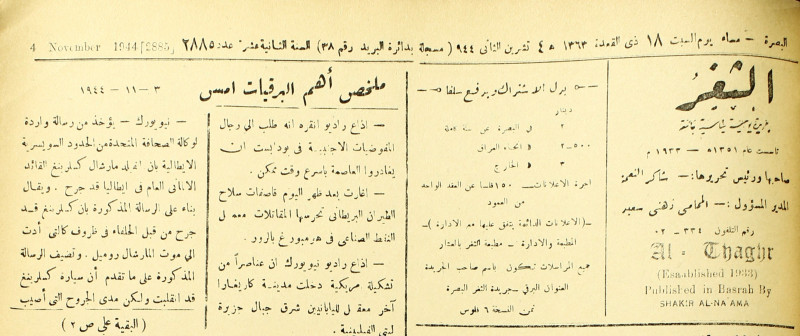 البصرة – مساء يوم السبت ١٨ ذي القعدة ١٣٦٣ ه ٤ تشرين الثاني ٩٤٤ ( مسجلة بدائرة البريد رقم ٣٨) السنة الثانية عشرة عدد: ٢٨٨٥ [2885] 4 November 1944
الثغر
جريدة يومية سياسية جامعة
تأسست عام ١٣٥١ ه – ١٩٣٣ م
صاحبها ورئيس تحريرها: – شاكر النعمة
المدير المسؤول: – المحامي زهني سعيد
رقم التلفون ٣٣٤ - ٠٢
Al - Thaghr
(Esnablished 1933)
Published in Basrah By
SHAKIR AL-NA AMA
بدل الاشتراك ويدفع سلفا
دينار
٢ في البصرة عن سنة كاملة
٥٠٠–٢ « انحاء العراق
٣ « الخارج
اجرة الاعلانات – ١٥٠ فلسا عن العقد الواحد
من العمود
–( الاعلانات الدائمة يتفق عليها مع الادارة )–
المطبعة والادارة – مطبعة الثغر بالعشار
جميع المراسلات تكون باسم صاحب الجريدة
العنوان البرقي – جريدة الثغر البصرة
ثمن النسخة ٦ فلوس
ملخص أهم البرقيات امس
— اذاع راديو انقره انه طلب الى رجال
المفوضيات الاجنبية في بودابست ان
يغادروا العاصمة باسرع وقت ممكن .
— اغارت بعد ظهر اليوم قاصفات سلاح
الطيران البريطاني تحرسها المقاتلات معمل
النفط الصناعي في هرمبورغ بالرور .
— اذاع راديو نيويورك ان عناصراً من
تشكيلة مريكية دخلت مدينة كاريغارا
آخر معقل لليابانيين شرق جبال جزيرة
ليتي الفيليبينية .
٣ – ١١ – ١٩٤٤
— نيويورك – يؤخذ من رسالة واردة
لوكالة الصحافة المتحدة من الحدود السويسرية
الايطالية بان المارشال كسلرينغ القائد
الالماني العام في ايطاليا قد جرح . ويقال
بناء على الرسالة المذكورة بان كسلرينغ قد
جرح من قبل الحلفاء في ظروف كالتي أدت
الى موت المارشال روميل . وتضيف الرسالة
المذكورة على ما تقدم أن سيارة كسلرينغ
قد انقلبت ولكن مدى الجروح التي أصيب
( البقية على ص ٢ )